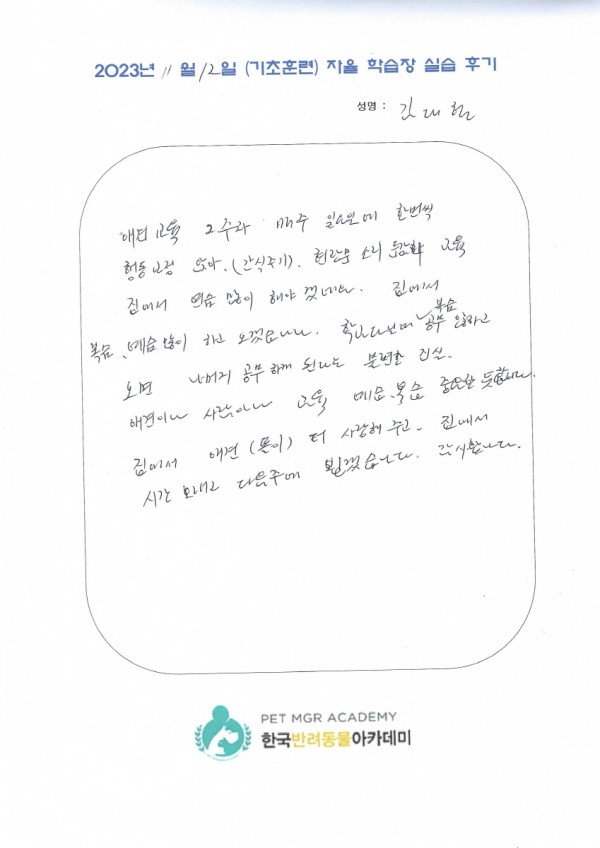 2023년 11 월 12일 (기초훈련) 자율 학습장 실습 후기
성명 : 김대현
애견 교육 2주차 매주 일요일에 한번씩
행동 교정 앉아. (간식주기). 현관문 소리 둔감화 교육
집에서 연습 많이 해야 겠네요. 집에서
복습, 예습 많이 하고 오겠습니다. 학교다보며 복습 공부 안하고
오면 나머지 공부하게 된다는 불편한 진실.
애견이나 사람이나 교육 예습.복습 중요한 듯합니다.
집에서 애견 (몬이) 더 사랑해 주고. 집에서
시간 보내고 다음주에 뵙겠습니다. 감사합니다.
PET MGR ACADEMY
한국반려동물아카데미